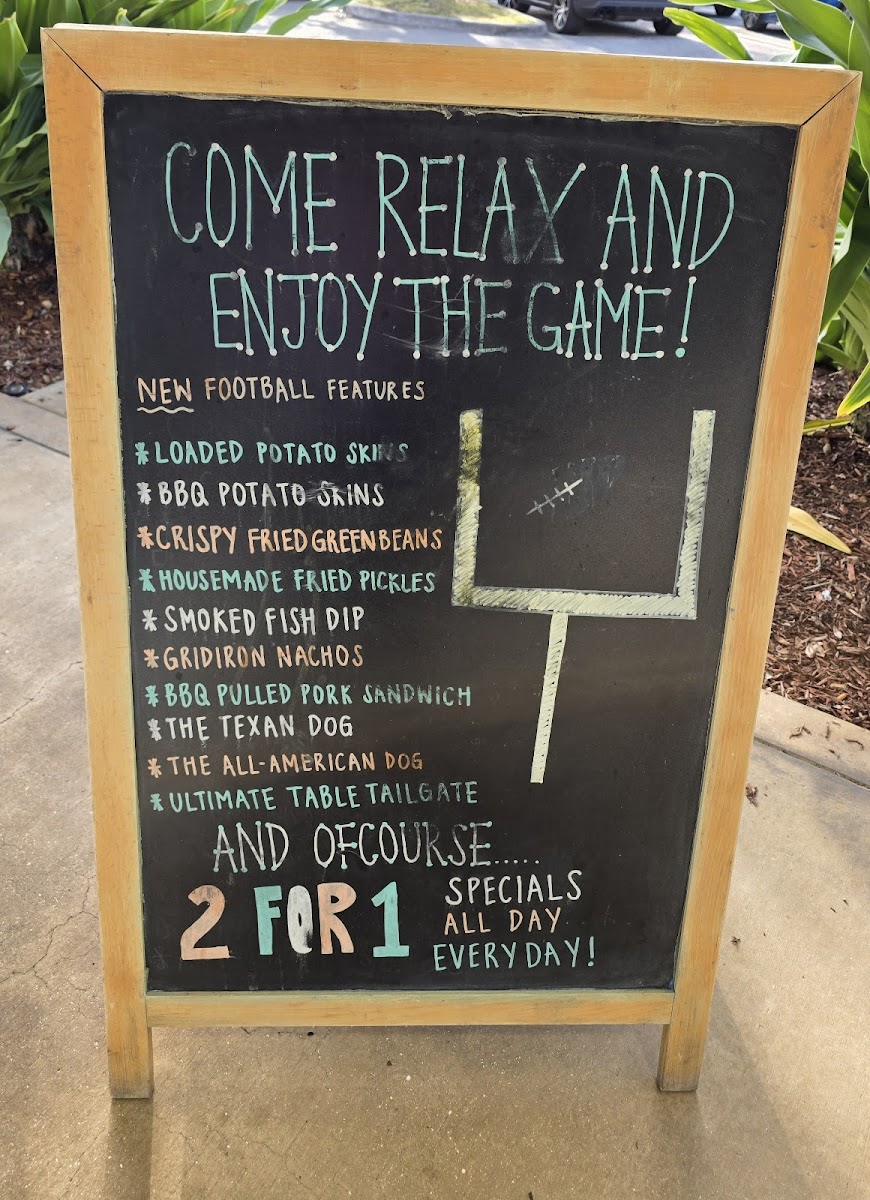 COME RELAX AND
ENJOY THE GAME!
NEW FOOTBALL FEATURES
*LOADED POTATO SKINS
*BBQ POTATO SKINS
*CRISPY FRIED GREENBEANS
*HOUSEMADE FRIED PICKLES
*SMOKED FISH DIP
*GRIDIRON NACHOS
*BBQ PULLED PORK SANDWICH
*THE TEXAN DOG
*THE ALL-AMERICAN DOG
*ULTIMATE TABLE TAILGATE
AND OFCOURSE.....
2 FOR 1
SPECIALS
ALL DAY
EVERYDAY!